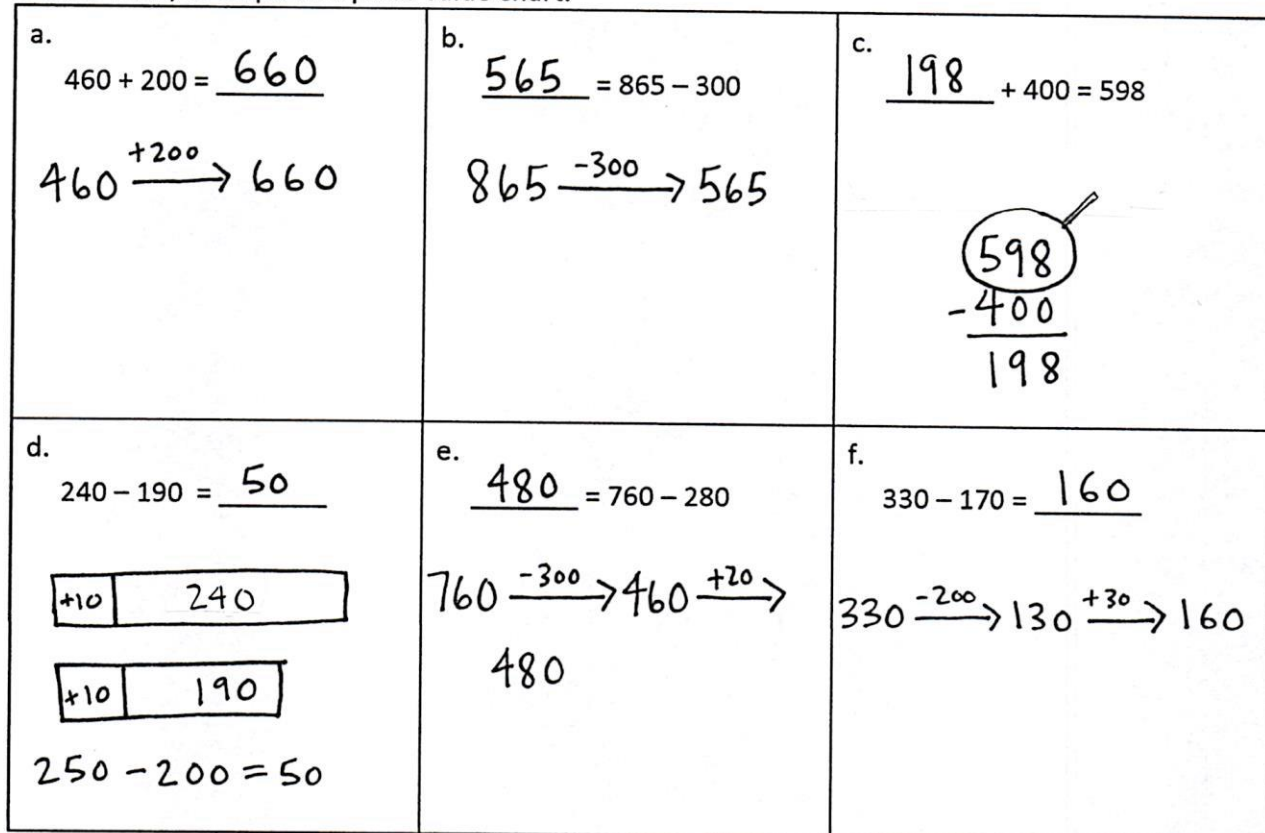 a.
460 + 200 = 660
460 +200→ 660
b.
565 = 865 – 300
865 -300→ 565
c.
198 + 400 = 598
598
-400
198
d.
240 – 190 = 50
+10 240
+10 190
250 - 200 = 50
e.
480 = 760 – 280
760 -300→ 460 +20→
480
f.
330 – 170 = 160
330 -200→ 130 +30→ 160